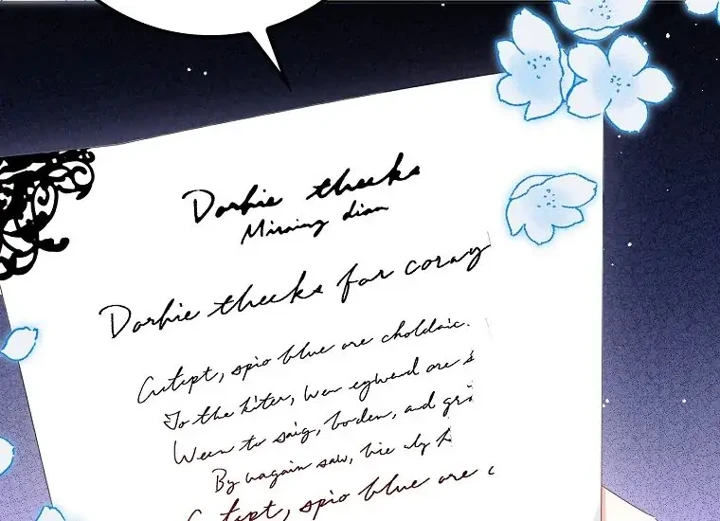 Dorhie theeks
Mirainy dian
Dorhie theeks for coray
Cutept, spio blue are choldaic.
To the kiter, wen egwend are s
Ween to saig, boden, and gri
By wagain saw, hie ely h
Cutept, spio blue are c